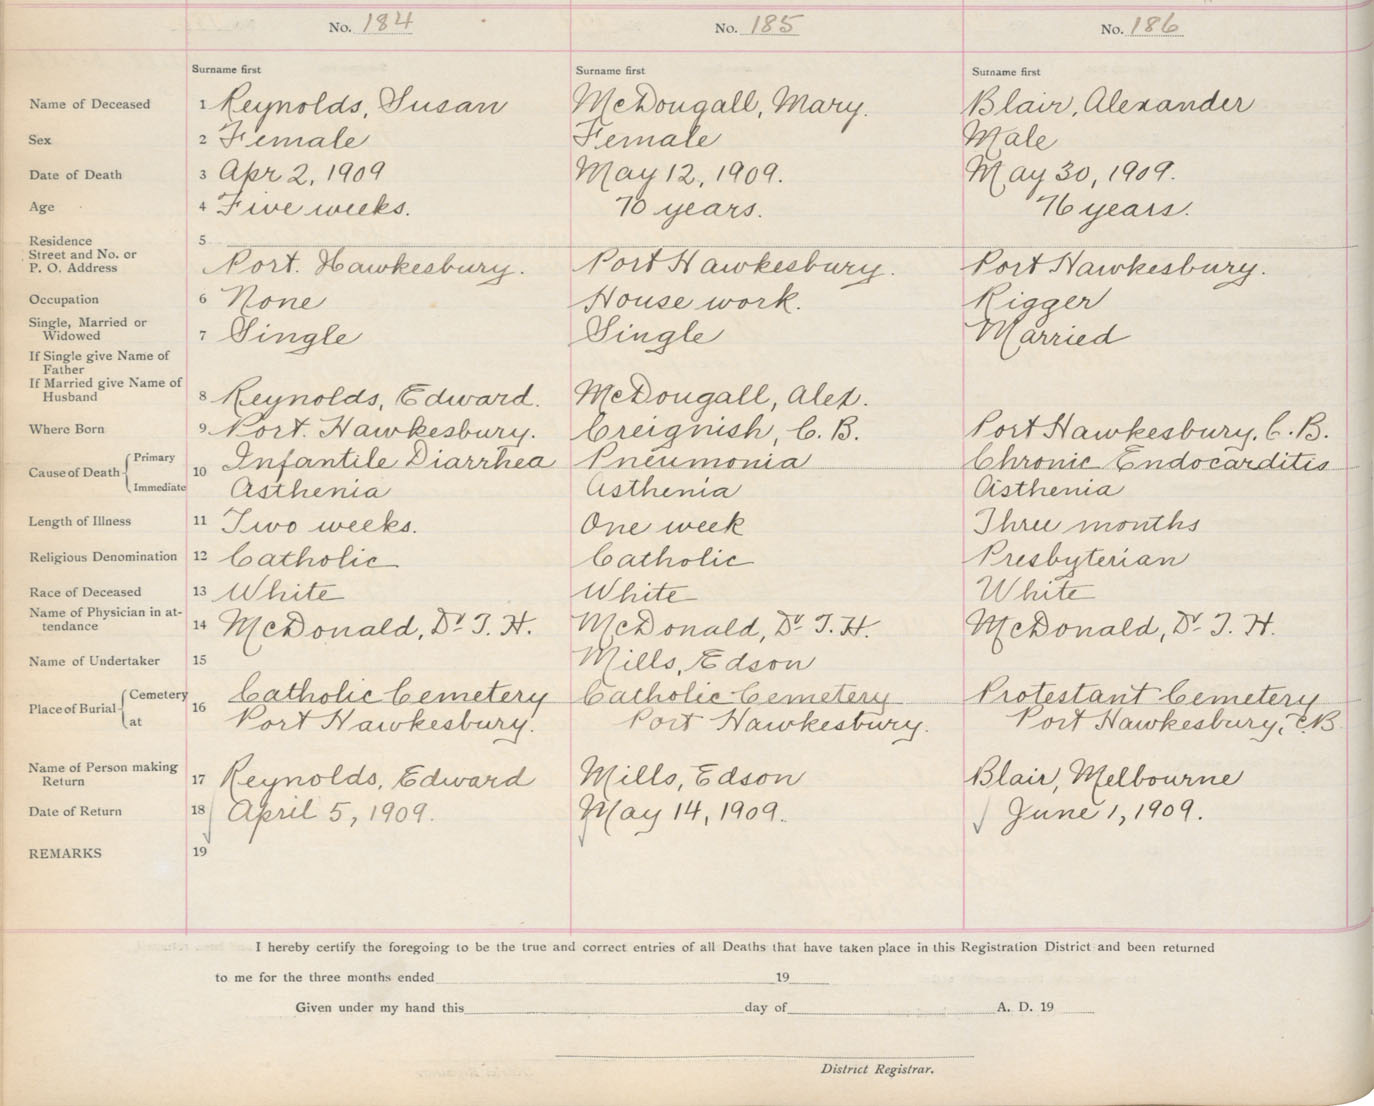 No. 184 No. 185 No. 186
Surname first Surname first Surname first
Name of Deceased 1 Reynolds, Susan McDougall, Mary. Blair, Alexander
Sex 2 Female Female Male
Date of Death 3 Apr 2, 1909 May 12, 1909. May 30, 1909.
Age 4 Five weeks. 70 years. 76 years.
Residence 5
Street and No. or
P. O. Address Port. Hawkesbury. Port Hawkesbury. Port Hawkesbury.
Occupation 6 None House work. Rigger
Single, Married or
Widowed 7 Single Single Married
If Single give Name of
Father
If Married give Name of
Husband 8 Reynolds, Edward. McDougall, Alex.
Where Born 9 Port. Hawkesbury. Creignish, C. B. Port Hawkesbury. C. B.
Cause of Death Primary 10 Infantile Diarrhea Pneumonia Chronic Endocarditis
Immediate Asthenia Asthenia Asthenia
Length of Illness 11 Two weeks. One week Three months
Religious Denomination 12 Catholic Catholic Presbyterian
Race of Deceased 13 White White White
Name of Physician in at-
tendance 14 McDonald, Dr. T. H. McDonald, Dr. T. H. McDonald, Dr. T. H.
Name of Undertaker 15 Mills, Edson
Place of Burial Cemetery 16 Catholic Cemetery Catholic Cemetery Protestant Cemetery
at Port Hawkesbury. Port Hawkesbury. Port Hawkesbury, C.B.
Name of Person making
Return 17 Reynolds, Edward Mills, Edson Blair, Melbourne
Date of Return 18 April 5, 1909. May 14, 1909. June 1, 1909.
REMARKS 19
I hereby certify the foregoing to be the true and correct entries of all Deaths that have taken place in this Registration District and been returned
to me for the three months ended 19
Given under my hand this day of A. D. 19
District Registrar.